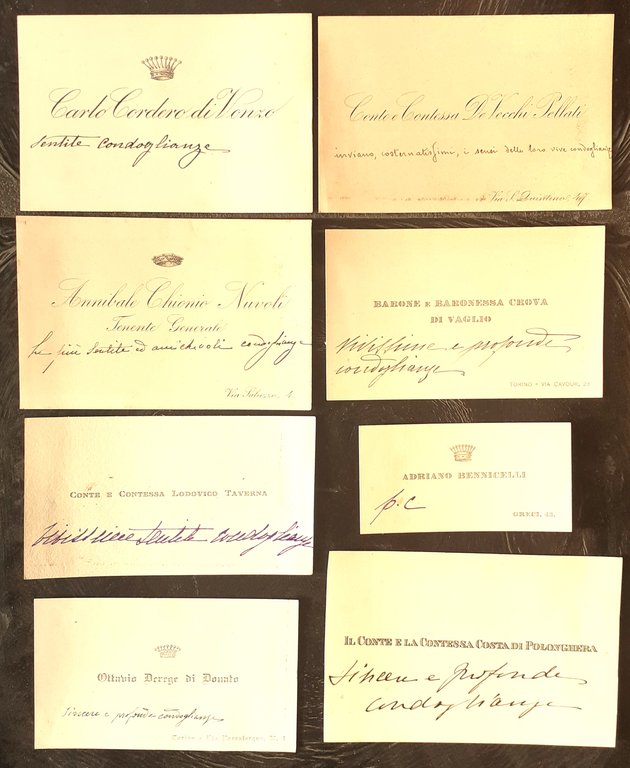 Carlo Cordero di Vonzo
sentite condoglianze
Conte e Contessa De Vecchi Pellati
inviano, costernatissimi, i sensi delle loro vive condoglianze
Via S. Quintino,
Annibale Chionio Nuvoli
Tenente Generale
Le più sentite ed amichevoli condoglianze
Via Saluzzo, 4
BARONE E BARONESSA CROVA
DI VAGLIO
Vivissime e profonde
condoglianze
TORINO - VIA CAVOUR,
CONTE E CONTESSA LODOVICO TAVERNA
Vivissime sentite condoglianze
ADRIANO BENNICELLI
p.c
GRECI, 43.
Ottavio Derege di Donato
Sincere e profonde condoglianze
Torino - Via
IL CONTE E LA CONTESSA COSTA DI POLONGHERA
Sincere e profonde
condoglianze